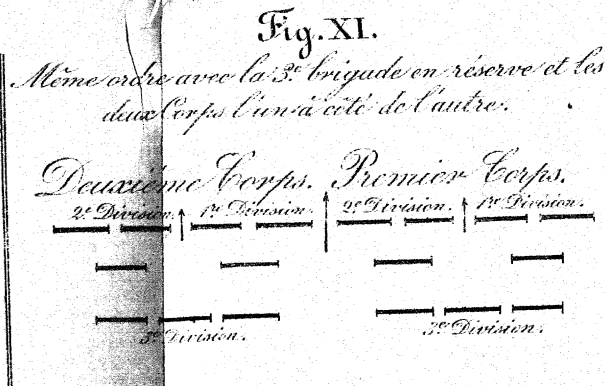 Fig. XI.
Même ordre avec la 3e brigade en réserve et les
deux Corps l'un à côté de l'autre.
Deuxième Corps. Premier Corps.
2e Division. 1re Division. 2e Division. 1re Division.
3e Division. 3e Division.